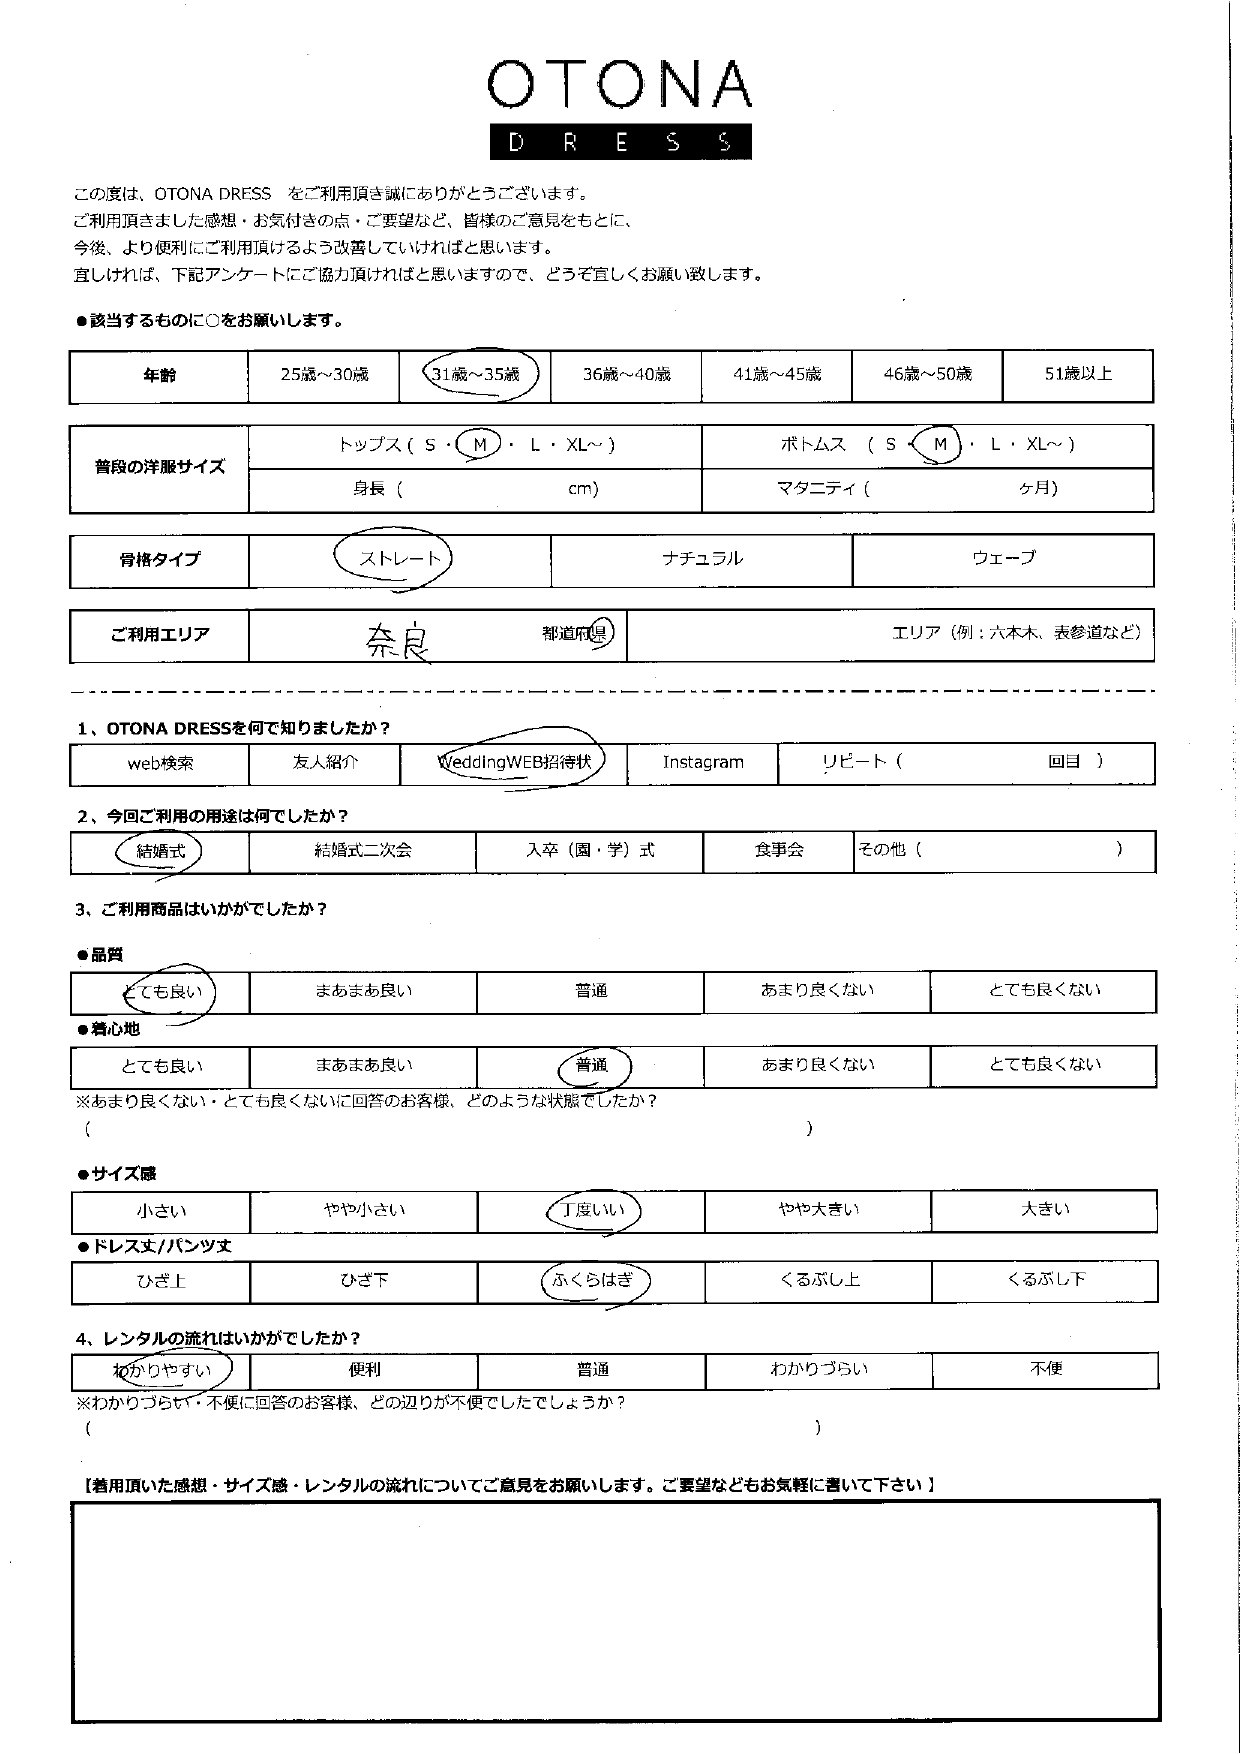 OTONA
DRESS
この度は、OTONA DRESS　をご利用頂き誠にありがとうございます。
ご利用頂きました感想・お気付きの点・ご要望など、皆様のご意見をもとに、
今後、より便利にご利用頂けるよう改善していければと思います。
宜しければ、下記アンケートにご協力頂ければと思いますので、どうぞ宜しくお願い致します。
●該当するものに○をお願いします。
年齢 25歳～30歳 31歳～35歳 36歳～40歳 41歳～45歳 46歳～50歳 51歳以上
普段の洋服サイズ トップス ( S ・ M ・ L ・ XL～ ) ボトムス ( S ・ M ・ L ・ XL～ )
身長 ( cm) マタニティ ( ヶ月)
骨格タイプ ストレート ナチュラル ウェーブ
ご利用エリア 奈良 都道府県 エリア（例：六本木、表参道など）
1、OTONA DRESSを何で知りましたか？
web検索 友人紹介 WeddingWEB招待状 Instagram リピート ( 回目 )
2、今回ご利用の用途は何でしたか？
結婚式 結婚式二次会 入卒（園・学）式 食事会 その他 ( )
3、ご利用商品はいかがでしたか？
●品質
とても良い まあまあ良い 普通 あまり良くない とても良くない
●着心地
とても良い まあまあ良い 普通 あまり良くない とても良くない
※あまり良くない・とても良くないに回答のお客様、どのような状態でしたか？
( )
●サイズ感
小さい やや小さい 丁度いい やや大きい 大きい
●ドレス丈/パンツ丈
ひざ上 ひざ下 ふくらはぎ くるぶし上 くるぶし下
4、レンタルの流れはいかがでしたか？
わかりやすい 便利 普通 わかりづらい 不便
※わかりづらい・不便に回答のお客様、どの辺りが不便でしたでしょうか？
( )
【着用頂いた感想・サイズ感・レンタルの流れについてご意見をお願いします。ご要望などもお気軽に書いて下さい】